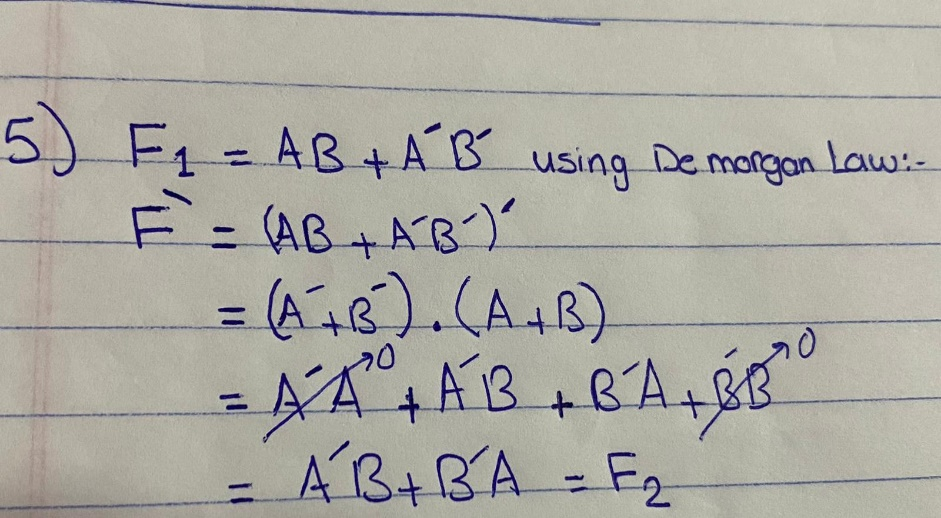 5) F₁ = AB + A'B' using De morgan Law:-
F` = (AB + A'B')'
= (A' + B') . (A + B)
= A'A→0 + A'B + B'A + B'B→0
= A'B + B'A = F₂